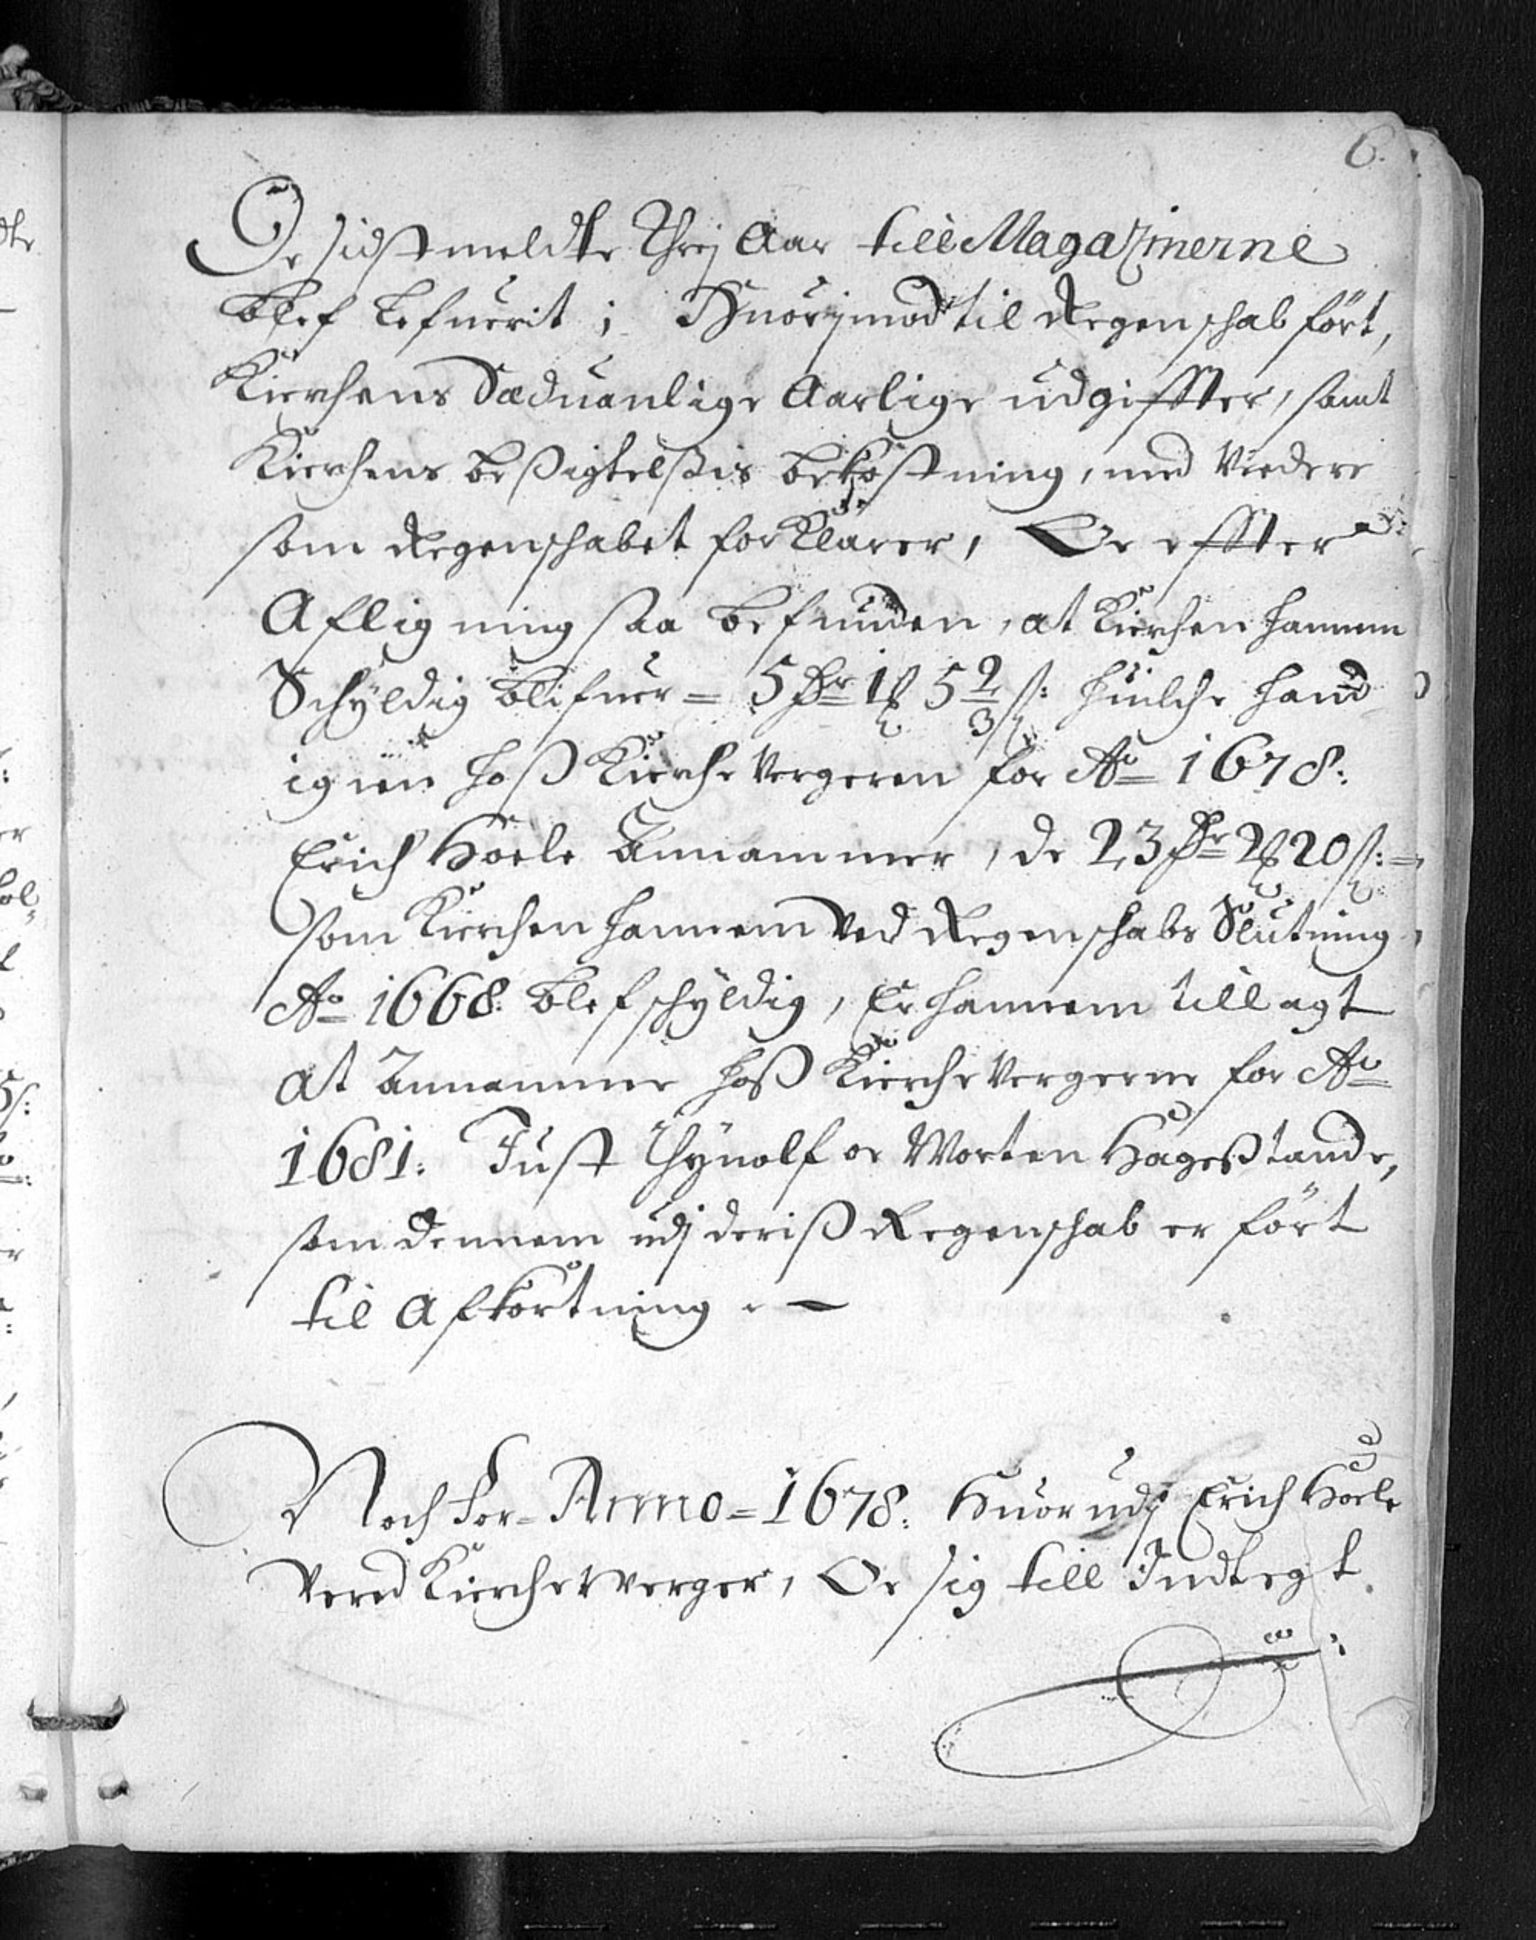 6.
De sidstmeldte Threj Aar till Magazinerne
blef Lefuerit; Huorimod til Regenschab ført,
Kierchens Sæduanlige Aarlige udgiffter, samt
Kierchens besigtelssis bekostning, med Viedere
som Regenschabet forKlarer, Oc effter
Afligning saa befunden, at Kierchen hannem
Schÿldig blifuer = 5 dr 1 5 2/3 s: huilche hand
igien hoss Kierche Vergeren for Ao 1678:
Erich Hoele Annammer, de 23 dr 2 20 s:
som Kierchen hannem Ved Regenschabs Slutning
Ao 1668: blef schÿldig, Er hannem tillagt
at Annamme hoss Kierche Vergerne for Ao
1681: Just Thynolf oc Morten Hagestande,
som dennem udj deriss Regenschab er ført
til Afkortning.
Noch for Anno = 1678: Huorudj Erich Hoele
Vered Kircheverger, Oc sig till Indtegt